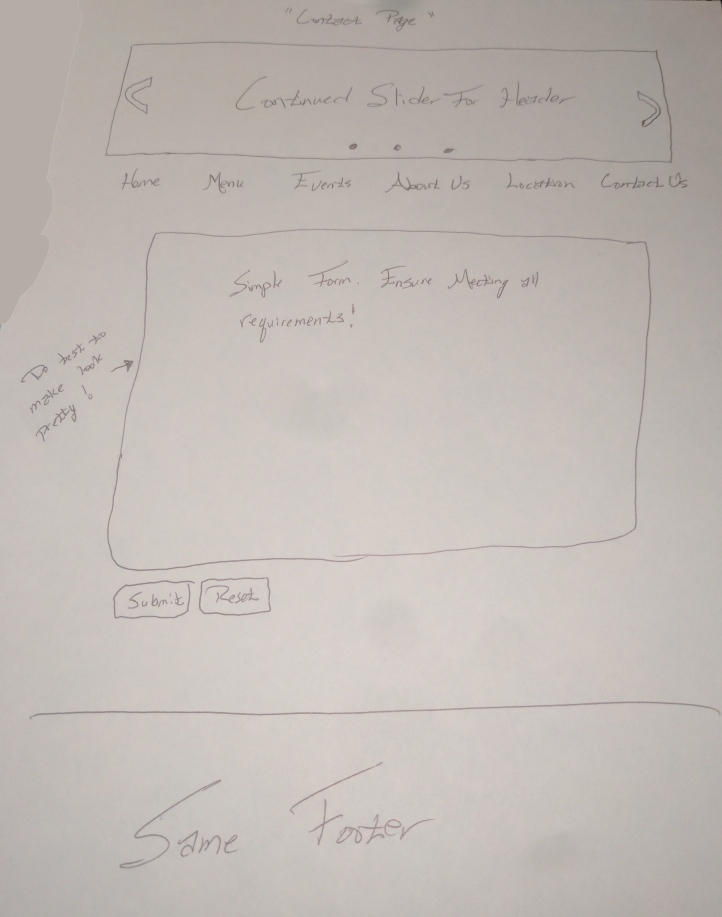 "Contact Page"
Continued Slider For Header
Home Menu Events About Us Location Contact Us
Simple Form. Ensure Meeting all
requirements!
Do best to
make look
pretty!
Submit Reset
Same Footer